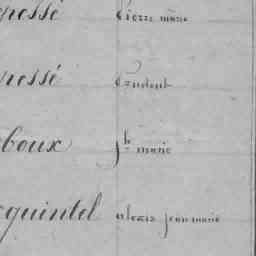 pressé Pierre marie
pressé
boux Jh marie
quintel alexis jean marie